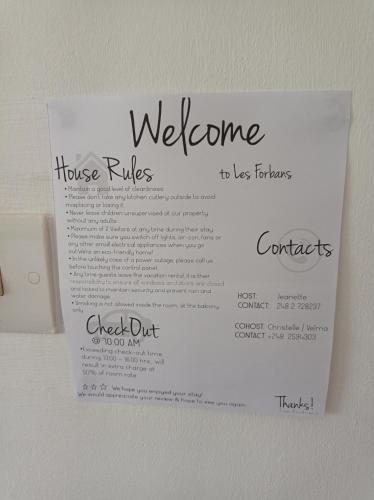 Welcome
House Rules
to Les Forbans
• Maintain a good level of cleanliness
• Please don't take any kitchen cutlery outside to avoid
misplacing or losing it.
• Never leave children unsupervised at our property
without any adults.
• Maximum of 2 Visitors at any time during their stay
• Please make sure you switch off lights, air-con, fans or
any other small electrical appliances when you go
out. We're an eco-friendly home!
• In the unlikely case of a power outage, please call us
before touching the control panel.
• Any time guests leave the vacation rental, it is their
responsibility to ensure all windows and doors are closed
and locked to maintain security and prevent rain and
water damage.
• Smoking is not allowed inside the room, at the balcony
only.
Contacts
HOST: Jeanette
CONTACT: 248 2 728237
COHOST: Christelle / Velma
CONTACT: +248 2584303
CheckOut
@ 10:00 AM
• Exceeding check-out time
during 10:00 - 16:00 hrs, will
result in extra charge at
50% of room rate
We hope you enjoyed your stay!
We would appreciate your review & hope to see you again.
Thanks!